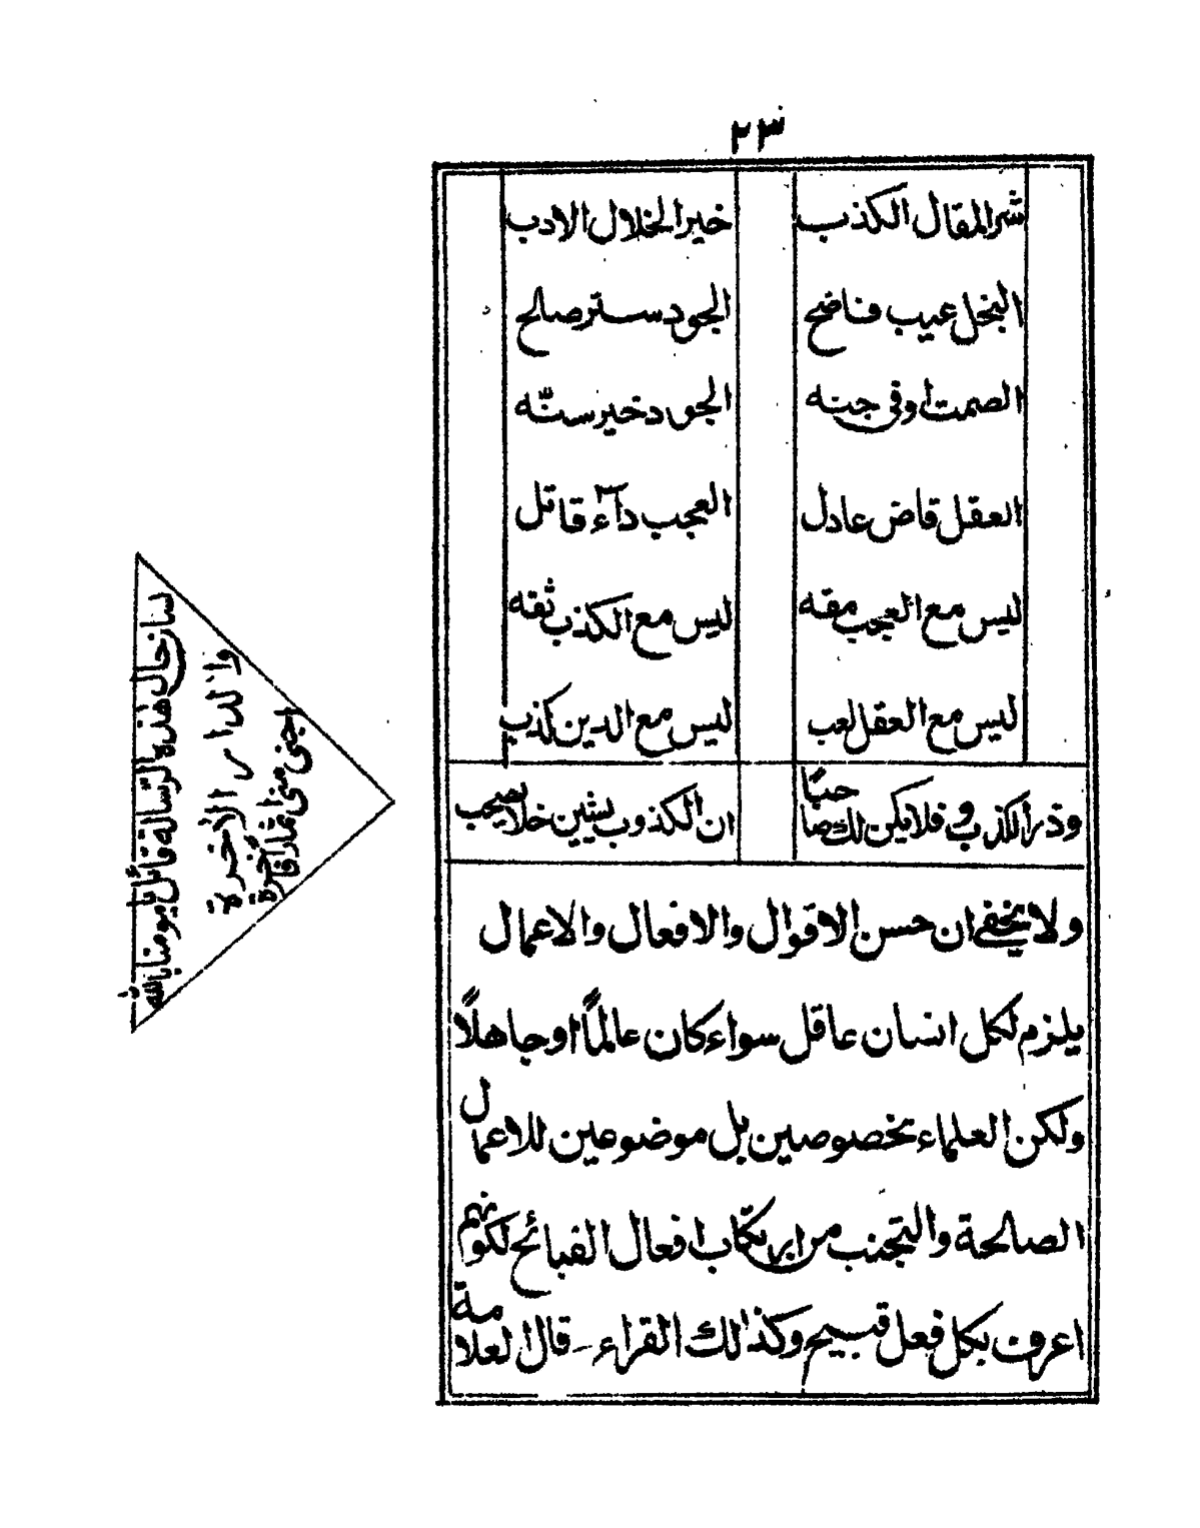 ٢٣
شر المقال الكذب خير الخلال الادب
البخل عيب فاضح الجود ستر صالح
الصمت اوقى جنه الجود خير سنّه
العقل قاض عادل العجب دآء قاتل
ليس مع العجب مقه ليس مع الكذب ثقه
ليس مع العقل لعب ليس مع الدين كذب
وذر الكذوب فلا يكن لك صاحبًا ان الكذوب يشين خلا يصحب
ولا يخفى ان حسن الاقوال والافعال والاعمال
يلزم لكل انسان عاقل سواء كان عالمًا او جاهلًا
ولكن العلماء مخصوصين بل موضوعين للاعمال
الصالحة والتجنب من ارتكاب افعال القبائح لكونهم
اعرف بكل فعل قبيح وكذالك القراء ـ قال العلامة
هذه الرسالة قائل يا مومنا بالله
والدار الآخرة
اجنى منى ثمارا فاخرة